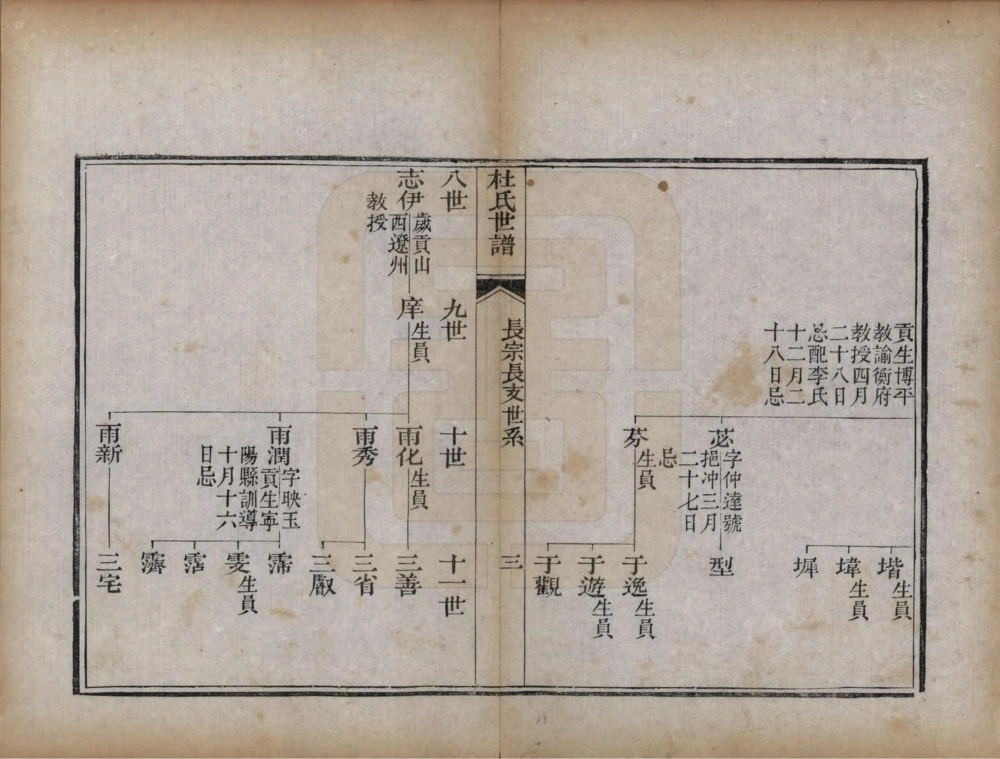 貢生博平
教諭衡府
教授四月
二十八日
忌配李氏
十二月二
十八日忌
堦生員
埠生員
墀
苾字仲達號
挹冲三月
二十七日
忌
型
芬生員
于逸生員
于遊生員
于觀
杜氏世譜
長宗長支世系
三
八世
九世
十世
十一世
志伊歲貢山
西遼州
教授
庠生員
雨化生員
三善
雨秀
三省
三厫
雨潤字映玉
貢生寧
陽縣訓導
十月十六
日忌
霈
雯生員
霑
霽
雨新
三宅